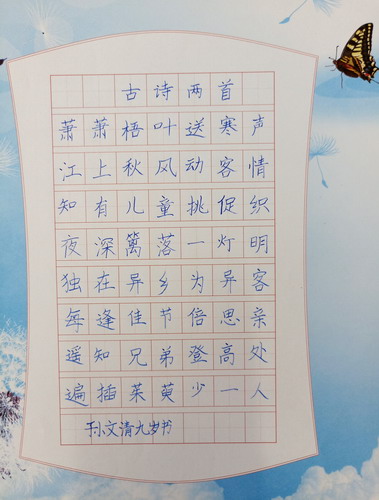 古诗两首
萧萧梧叶送寒声
江上秋风动客情
知有儿童挑促织
夜深篱落一灯明
独在异乡为异客
每逢佳节倍思亲
遥知兄弟登高处
遍插茱萸少一人
孙文清九岁书